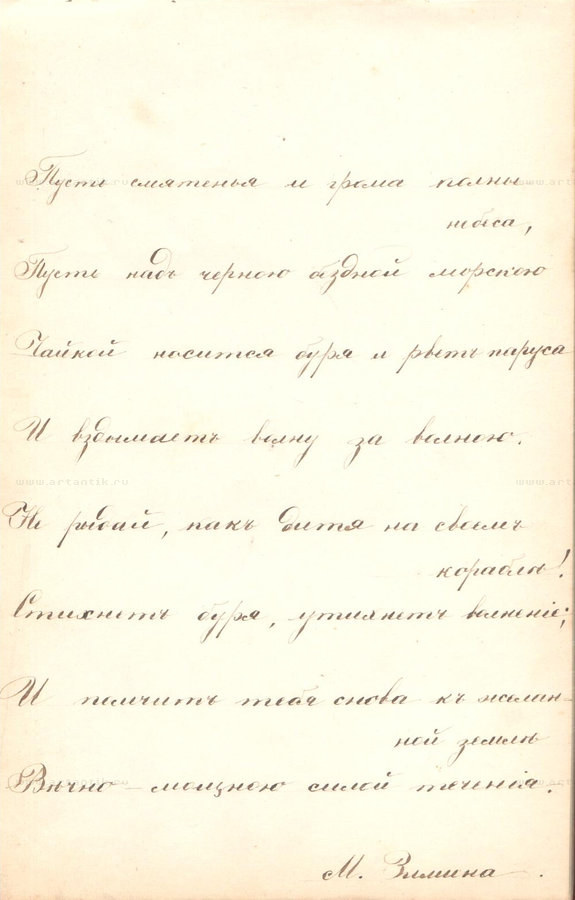 Пусть смятенья и грома полны
небеса,
Пусть надъ черною бездной морскою
Чайкой носится буря и рветъ паруса
И вздымаетъ волну за волною.
Не рыдай, какъ дитя на своемъ
кораблѣ!
Стихнетъ буря, утихнетъ волненіе;
И помчитъ тебя снова къ желан-
ной землѣ
Вѣчно - мощною силой теченія.
М. Зимина.
www.artantik.ru